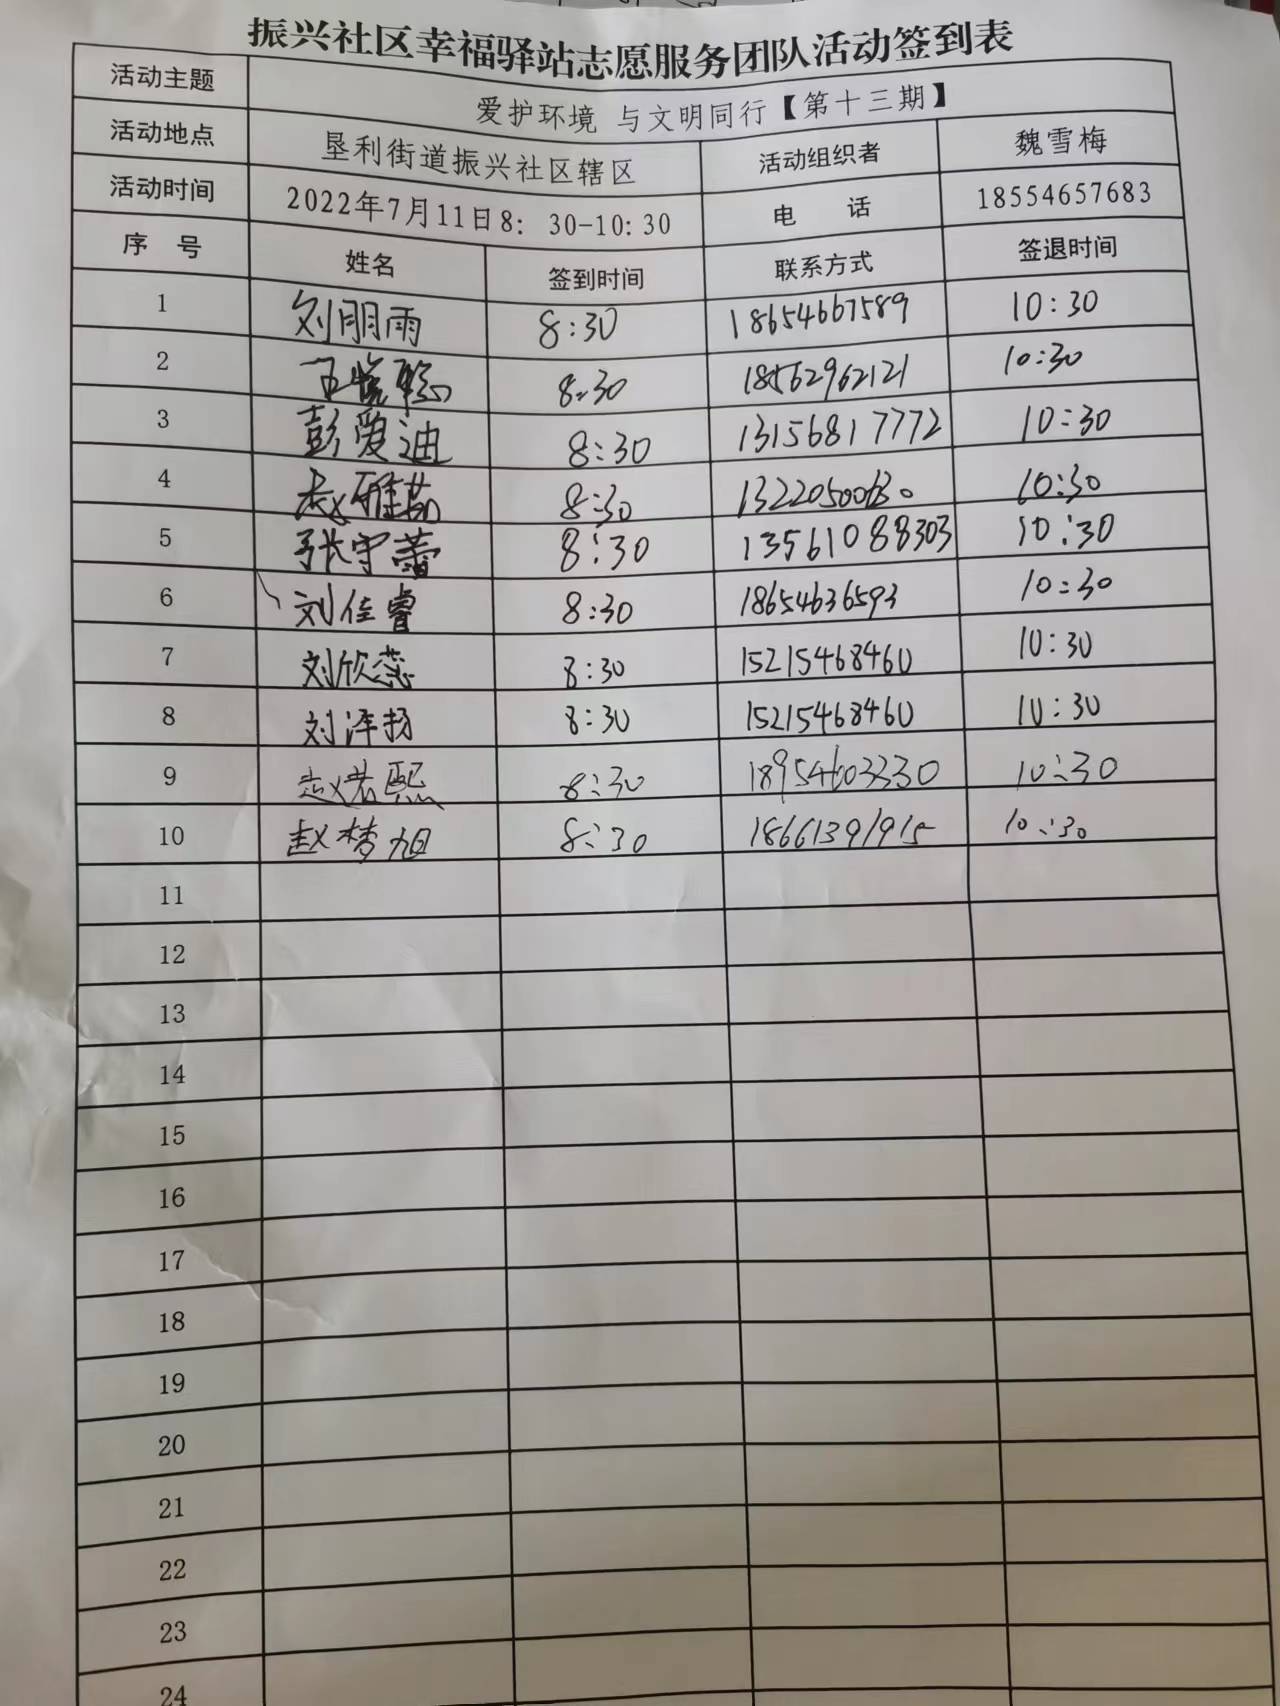 振兴社区幸福驿站志愿服务团队活动签到表
活动主题 爱护环境 与文明同行【第十三期】
活动地点 垦利街道振兴社区辖区 活动组织者 魏雪梅
活动时间 2022年7月11日8：30-10:30 电 话 18554657683
序 号 姓名 签到时间 联系方式 签退时间
1 刘明雨 8:30 18654667589 10:30
2 8:30 18562962121 10:30
3 彭爱迪 8:30 13156817772 10:30
4 赵雅茹 8:30 10:30
5 张宇蕾 8:30 13561088303 10:30
6 刘佳睿 8:30 18654636593 10:30
7 刘欣蕊 8:30 15215468460 10:30
8 刘泽扬 8:30 15215468460 10:30
9 赵若熙 8:30 18954603330 10:30
10 赵梦旭 8:30 18661391915 10:30
11
12
13
14
15
16
17
18
19
20
21
22
23
24